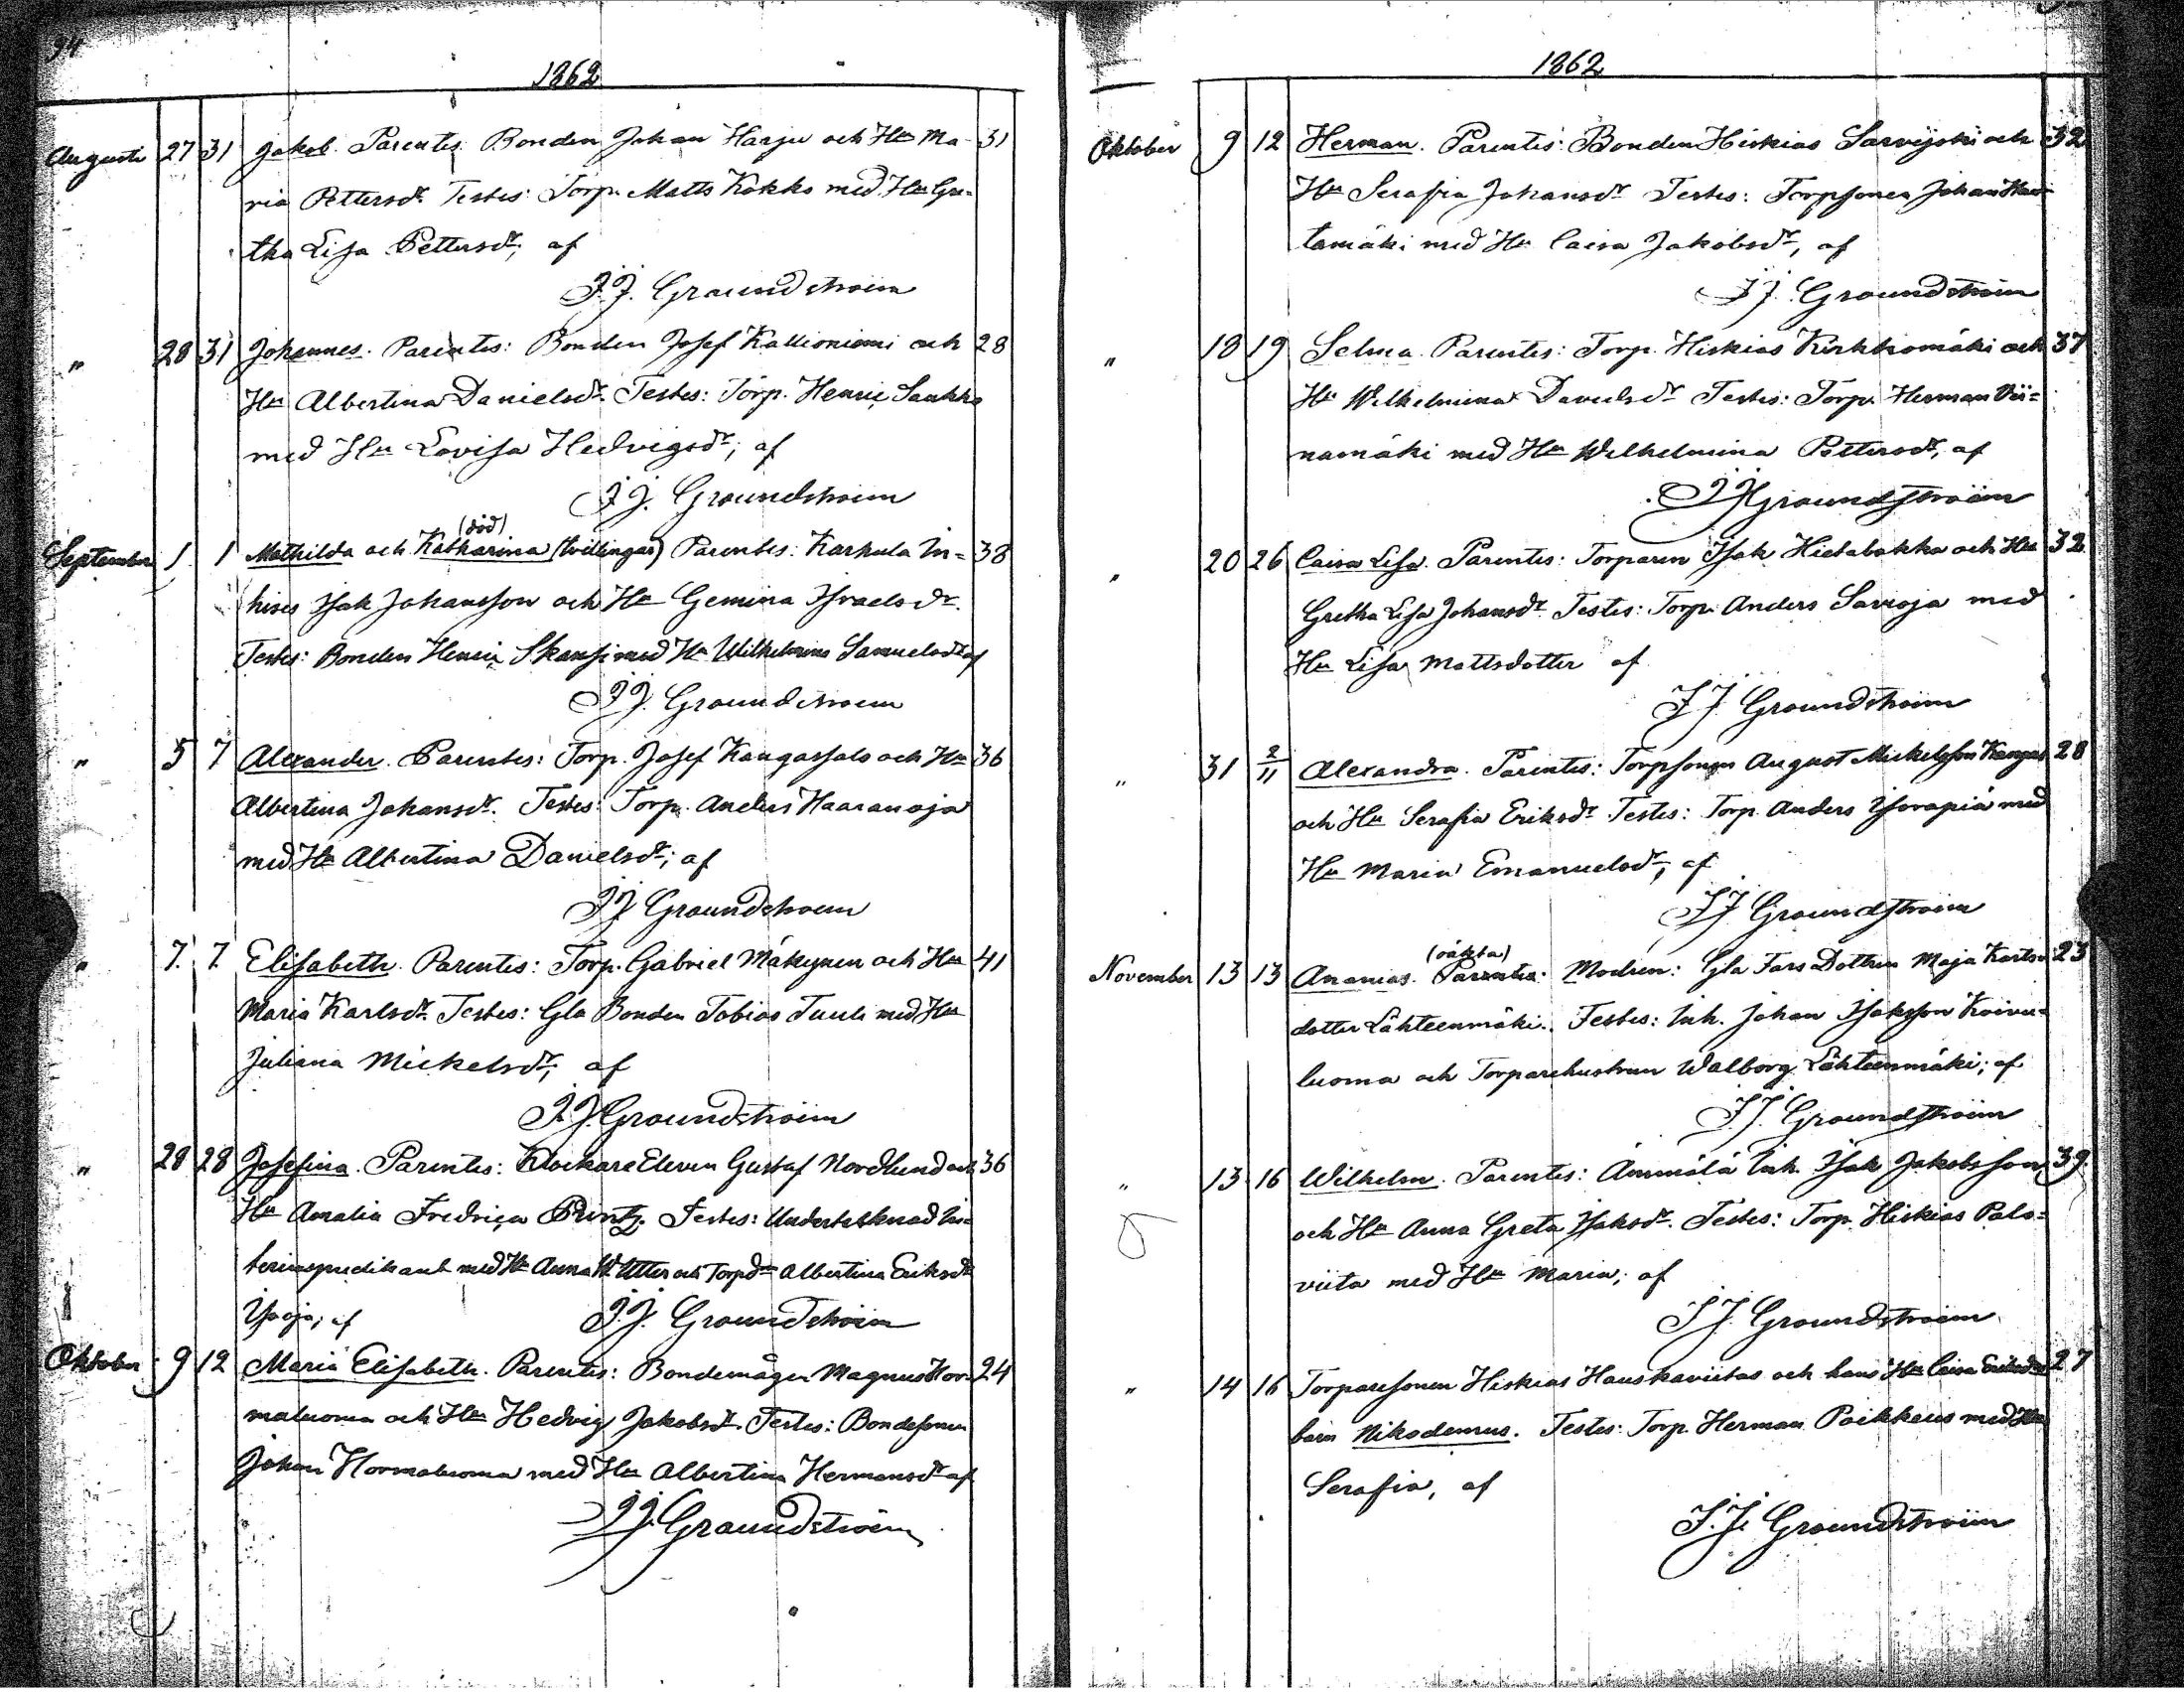 94
1862
Augusti 27 31 Jakob. Parentes: Bonden Johan Harju och Hu Ma- 31
ria Pettersdr. Testes: Torp. Matts Kokko med Hu Gre-
tha Lisa Pettersdr; af
J.J. Groundstroëm
" 28 31 Johannes. Parentes: Bonden Josef Kallioniemi och 28
Hu Albertina Danielsdr. Testes: Torp. Henric Saukko
med Hu Lovisa Hedvigsdr; af
J.J. Groundstroëm
(död)
September 1 1 Mathilda och Katharina (tvillingar) Parentes: Karhula In- 38
hises Isak Johansson och Hu Gemina Israelsdr.
Testes: Bonden Henric Skansi med Hu Wilhelmina Samuelsdr af
J.J. Groundstroëm
" 5 7 Alexander. Parentes: Torp. Josef Kangassalo och Hu 36
Albertina Johansdr. Testes: Torp. Anders Haaranoja
med Hu Albertina Danielsdr; af
J.J. Groundstroëm
" 7. 7. Elisabeth. Parentes: Torp. Gabriel Mäkynen och Hu 41
Maria Karlsdr. Testes: Gla Bonden Tobias Tuuli med Hu
Juliana Mickelsdr; af
J.J. Groundstroëm
" 28 28 Josefina. Parentes: Klockare Eleven Gustaf Nordlund och 36
Hu Amalia Fredrica Printz. Testes: Undertecknad In-
terimspredikant med Hu Anna W. Utter och Torpdr Albertina Eriksdr
Isooja; af J.J. Groundstroëm
Oktober 9 12 Maria Elisabeth. Parentes: Bondemågen Magnus Hor- 24
maluoma och Hu Hedvig Jakobsdr. Testes: Bondesonen
Johan Hormaluoma med Hu Albertina Hermansdr af
J.J. Groundstroëm
1862
Oktober 9 12 Herman. Parentes: Bonden Hiskias Sarvijoki och 32
Hu Serafia Johansdr Testes: Torpsonen Johan Hau-
tamäki med Hu Caisa Jakobsdr, af
J.J. Groundstroëm
" 18 19 Selma. Parentes: Torp. Hiskias Kirkkomäki och 37
Hu Wilhelmina Davidsdr Testes: Torp. Herman Vii-
namäki med Hu Wilhelmina Pettersdr, af
J.J. Groundstroëm
" 20 26 Caisa Lisa. Parentes: Torparen Isak Hietalakka och Hu 32
Gretha Lisa Johansdr. Testes: Torp. Anders Sarroja med
Hu Lisa Mattsdotter af
J.J. Groundstroëm
" 31 2/11 Alexandra. Parentes: Torpsonen August Mickelsson Kangas 28
och Hu Serafia Eriksdr. Testes: Torp. Anders Isorapiä med
Hu Maria Emanuelsdr; af
J.J. Groundstroëm
(oäkta)
November 13 13 Ananias. Parentes: Modren: Gla Fars Dottren Maja Karls- 23
dotter Lähteenmäki. Testes: Inh. Johan Isaksson Koivu-
luoma och Torparehustrun Walborg Lähteenmäki; af
J.J. Groundstroëm
" 13 16 Wilhelm. Parentes: Ämmälä Inh. Isak Jakobsson 39.
och Hu Anna Greta Isaksdr. Testes: Torp. Hiskias Palo-
viita med Hu Maria; af
J.J. Groundstroëm
" 14 16 Torparesonen Hiskias Hauskaviitas och hans Hu Caisa Eriksdrs 27
barn Nikodemus. Testes: Torp. Herman Poikkeus med Hu
Serafia, af
J.J. Groundstroëm